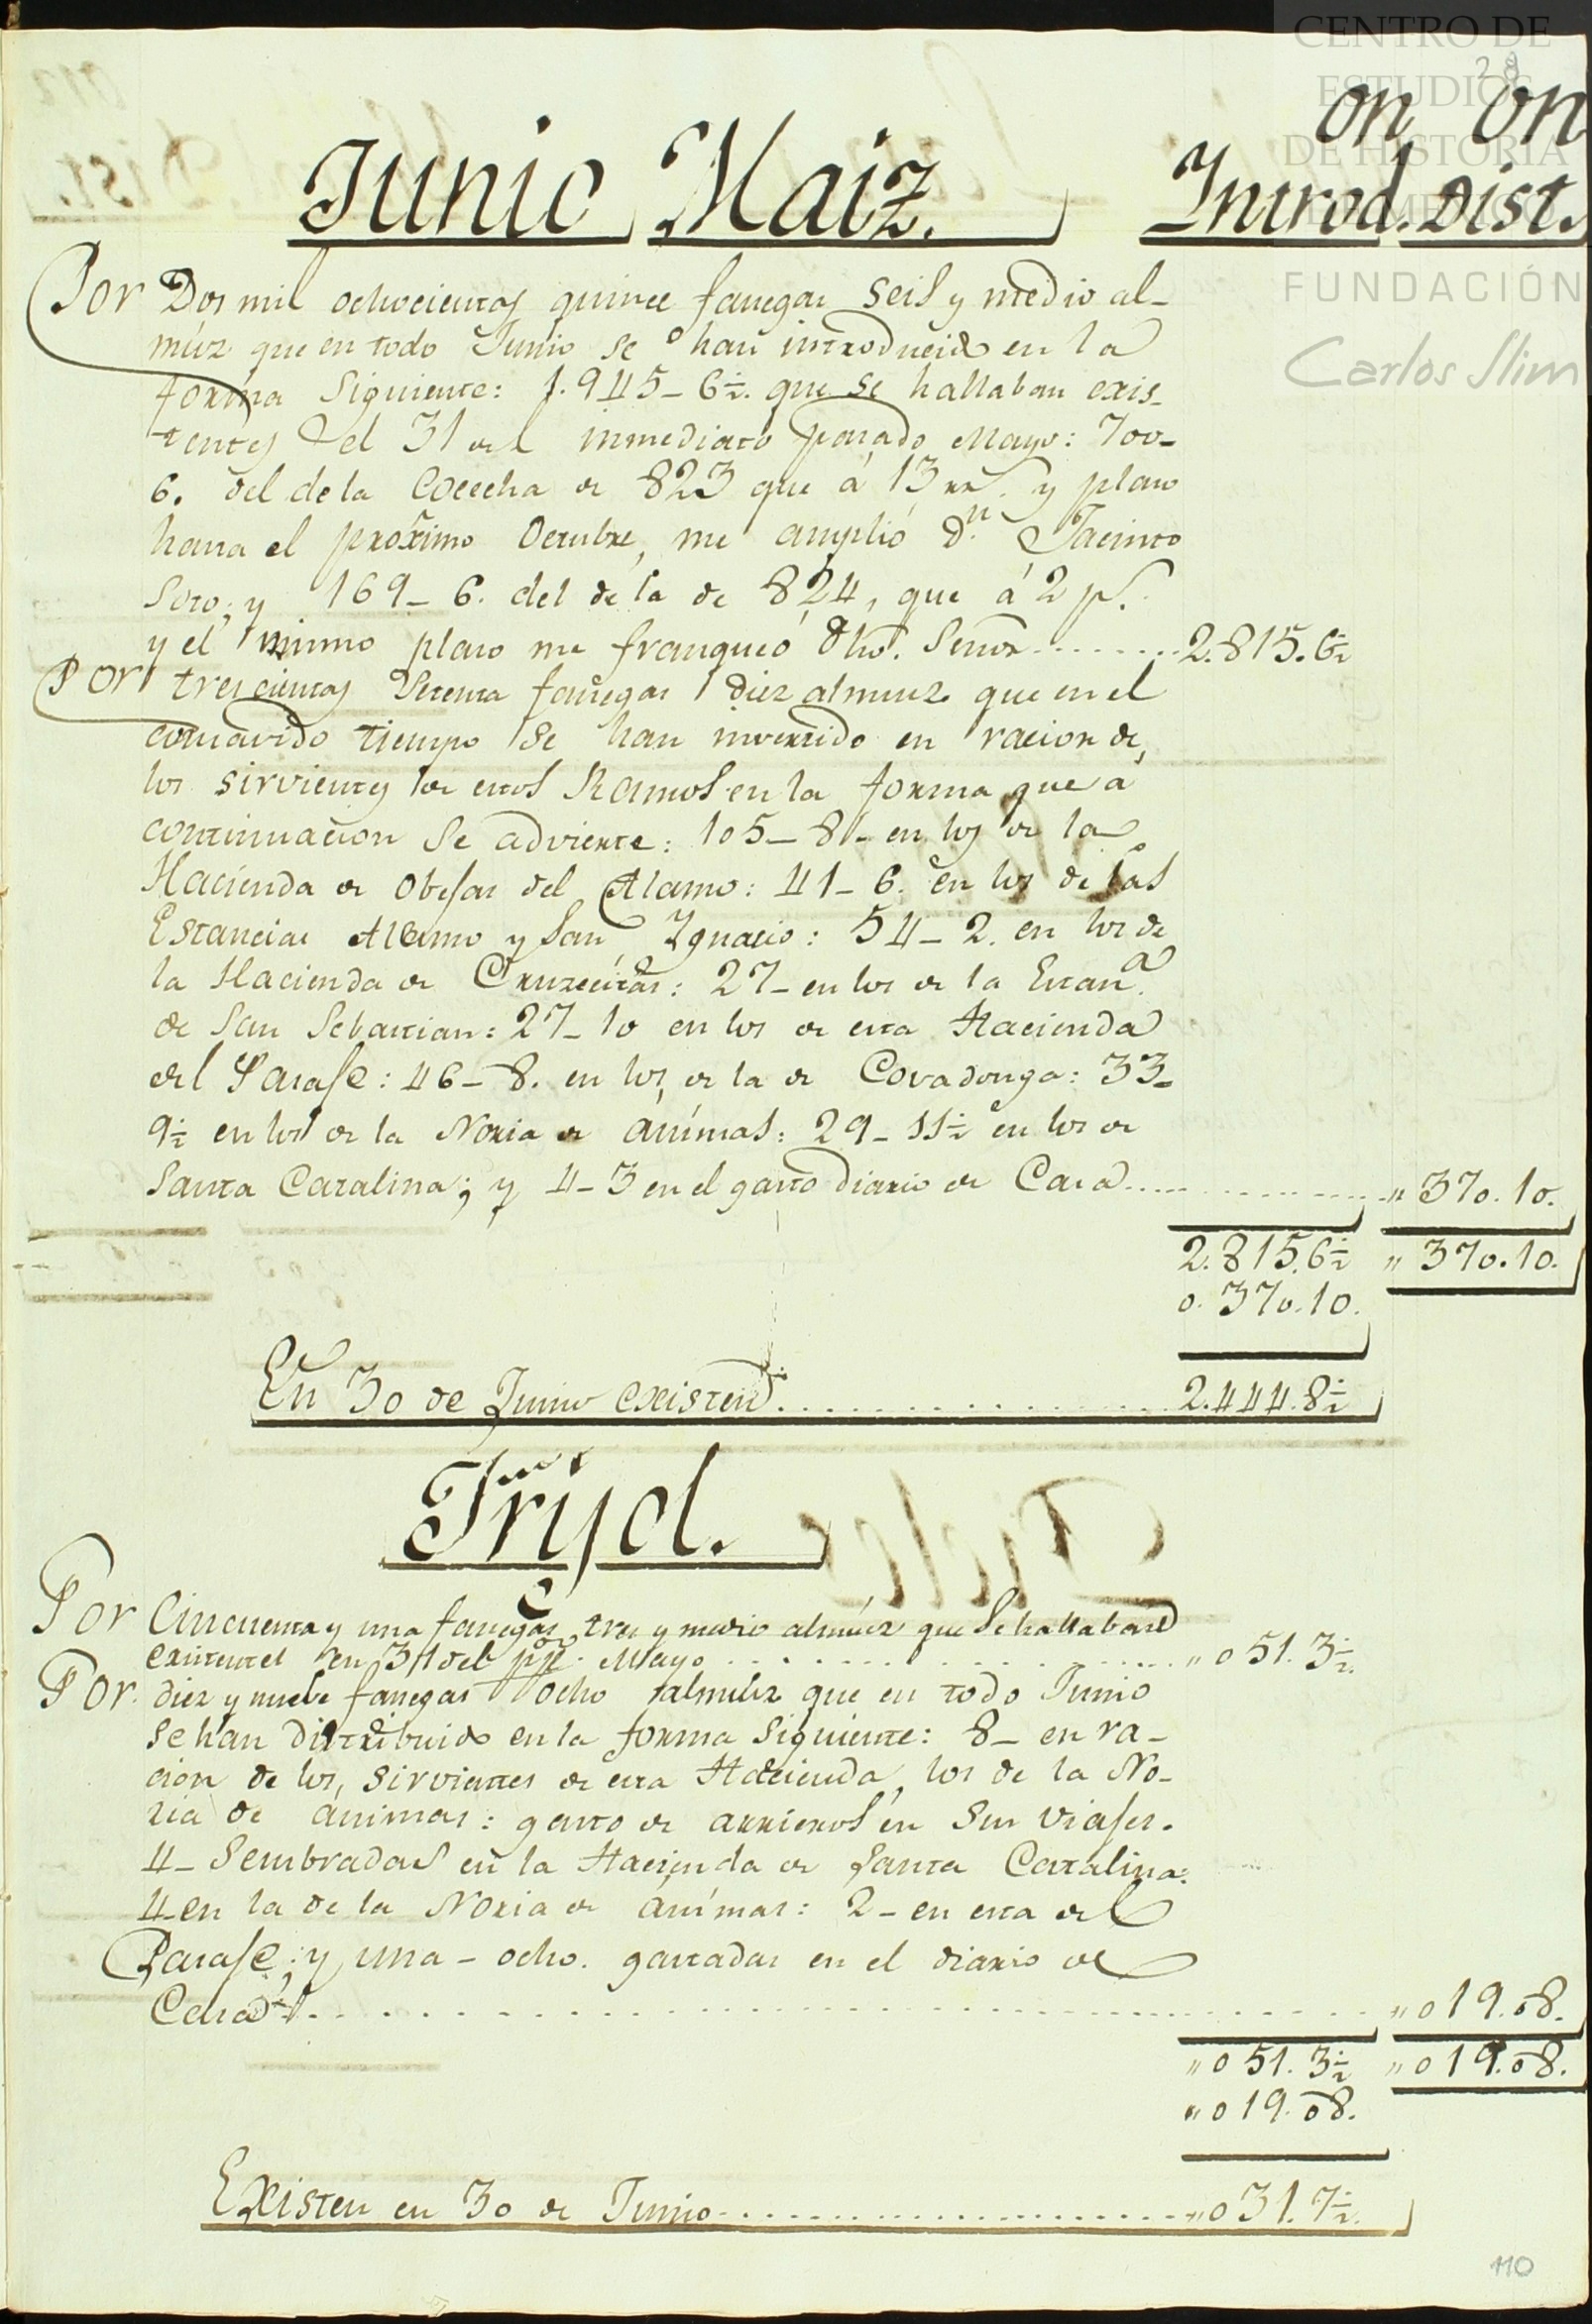 CENTRO DE
ESTUDIOS
DE HISTORIA
DE MÉXICO
FUNDACIÓN
Carlos Slim
28
on on
Junio Maiz. Introd. Dist.
Por Dos mil ochocientas quince fanegas seis y medio al-
muz que en todo Junio se han introducido en la
forma Siguiente: 1.945-6½. que se hallaban exis-
tentes el 31 del inmediato pasado Mayo: 700-
6. del de la Cocecha de 823 que á 13 rr.s y plaso
hasta el proximo Octubre, me amplió D.n Jacinto
Soto; y 169-6. del de la de 824, que á 2 p.s
y el mismo plaso me franqueó dho. Señor........2.815.6½
Por trescientas Setenta fanegas diez almuz que en el
comavido tiempo se han invertido en racion de
los sirvientes de estos Ramos en la forma que á
continuacion se advierte: 105-8- en los de la
Hacienda de Obejas del Alamo: 41-6. en los de las
Estancias Alamo y San Ygnacio: 54-2. en los de
la Hacienda de Cruzecitas: 27- en los de la Estan.a
de San Sebastian: 27-10 en los de esta Hacienda
del Parase: 46-8. en los de la de Covadonga: 33-
9½ en los de la Noria de ánimas: 29-11½ en los de
Santa Catalina; y 4-3 en el gasto diario de Casa........" 370.10.
2.815.6½ " 370.10.
0.370.10.
En 30 de Junio existen................2.444.8½
Trigo.
Por Cincuenta y una fanegas tres y medio almúz que se hallaban
existentes en 31 del pp.o Mayo................" 0 51.3½
Por diez y nueve fanegas ocho almúz que en todo Junio
se han distribuido en la forma Siguiente: 8- en ra-
cion de los sirvientes de esta Hacienda, los de la No-
ria de ánimas: gasto de arrieros en Sus Viajes.
4- Sembradas en la Hacienda de Santa Catalina:
4- en la de la Noria de ánimas: 2- en esta del
Parase; y una- ocho. gastadas en el diario de
Casa................" 0 19.08.
" 0 51.3½ " 0 19.08.
" 0 19.08.
Existen en 30 de Junio................" 0 31.7½.
110